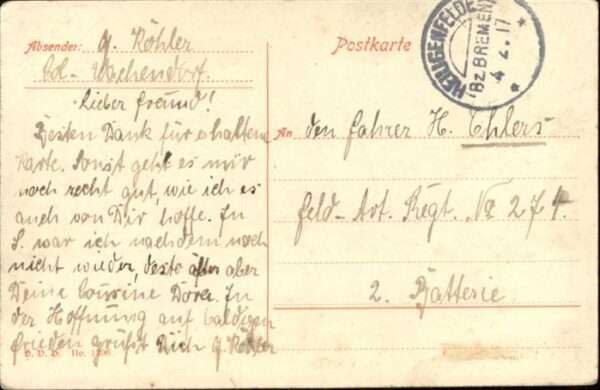 Absender: G. Köhler
Postkarte
HEILIGENFELDE
(Bz. BREMEN)
4.2.17
Lieber Freund!
Besten Dank für erhaltene
Karte. Sonst geht es mir
noch recht gut, wie ich es
auch von Dir hoffe. In
S. war ich nachdem noch
nicht wieder, desto öfter aber
Deine Cousine Dora. In
der Hoffnung auf baldigen
Frieden grüßt Dich G. Köhler
An den Fahrer H. Ehlers
Feld-Art. Regt. No 274.
2. Batterie.